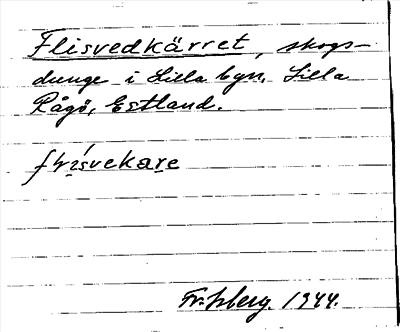 Flisvedkärret, skogs-
dunge i Lilla byn. Lilla
Rågö, Estland.
Isberg. 1944.